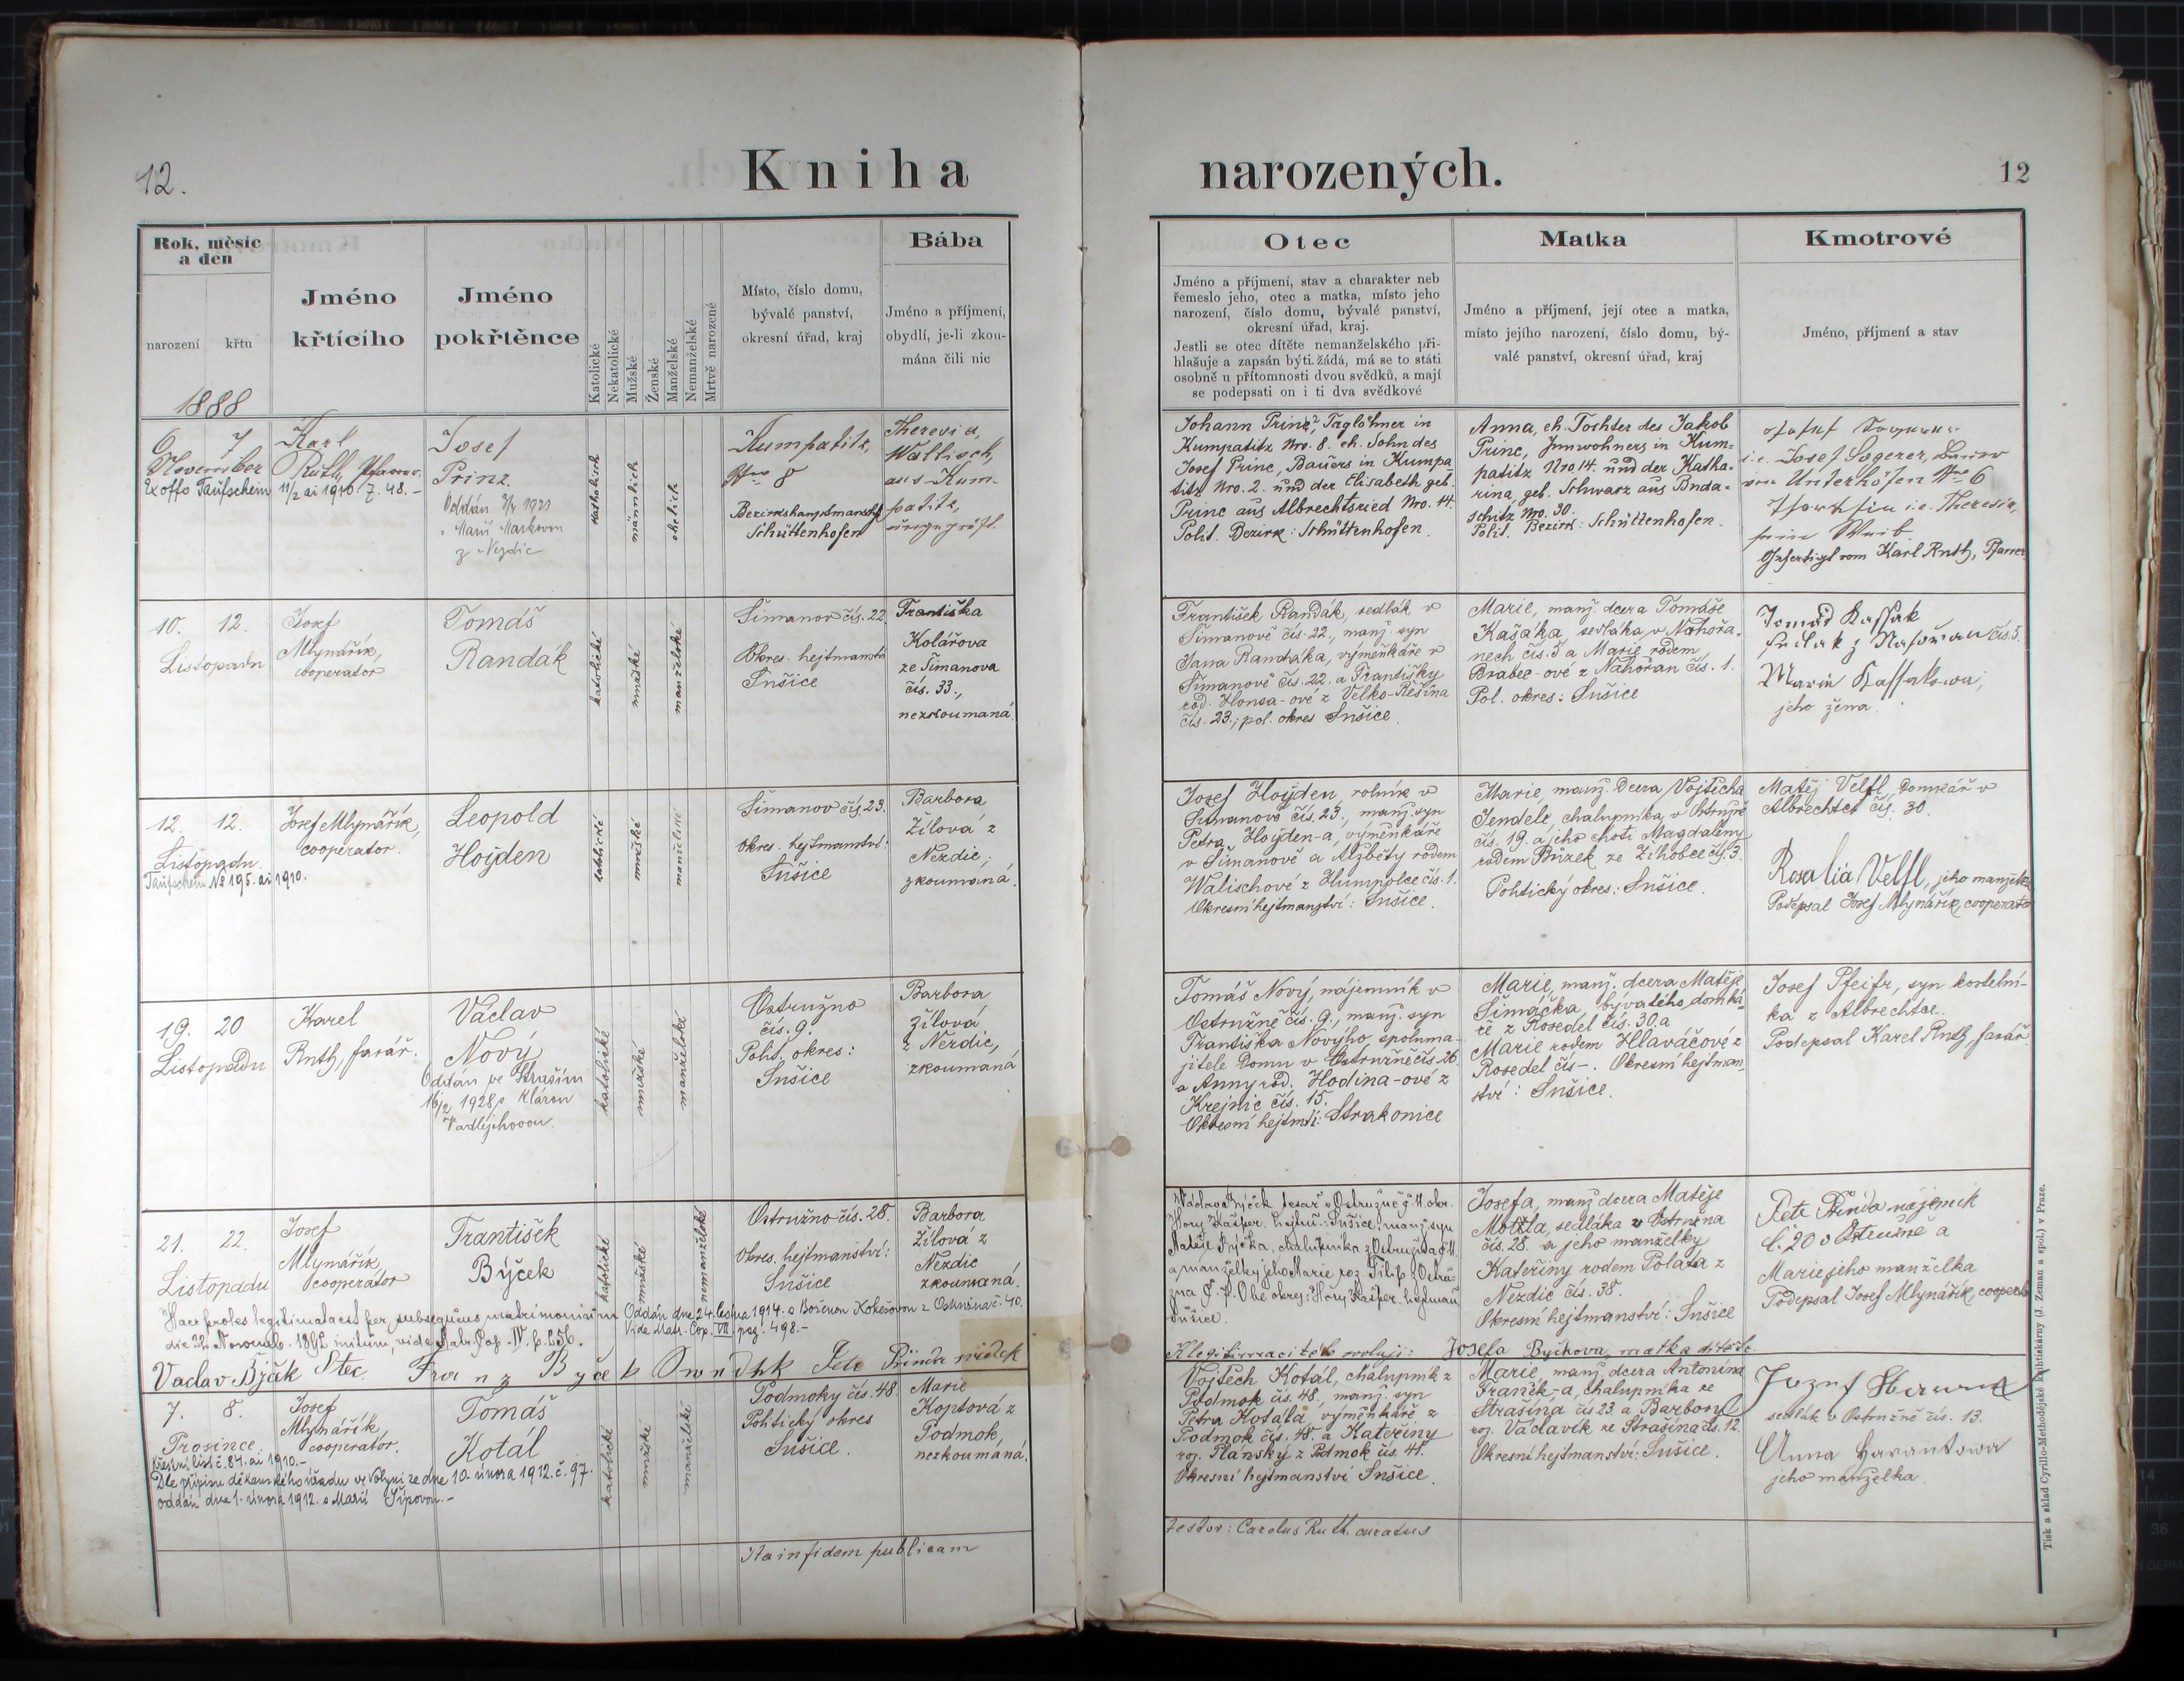 12.
Kniha
narozených.
12
Rok, měsíc
a den
narození
křtu
Jméno
křtícího
Jméno
pokřtěnce
Katolické
Nekatolické
Mužské
Ženské
Manželské
Nemanželské
Mrtvě narozené
Místo, číslo domu,
bývalé panství,
okresní úřad, kraj
Bába
Jméno a příjmení,
obydlí, je-li zkou-
mána čili nic
Otec
Jméno a příjmení, stav a charakter neb
řemeslo jeho, otec a matka, místo jeho
narození, číslo domu, bývalé panství,
okresní úřad, kraj.
Jestli se otec dítěte nemanželského při-
hlašuje a zapsán býti žádá, má se to státi
osobně u přítomnosti dvou svědků, a mají
se podepsati on i ti dva svědkové
Matka
Jméno a příjmení, její otec a matka,
místo jejího narození, číslo domu, bý-
valé panství, okresní úřad, kraj
Kmotrové
Jméno, příjmení a stav
1888
6 7
November
Ex offo Taufschein 11/2 ai 1910. Z. 48.-
Karl
Ruth, Pfarrer.
Josef
Prinz
Oddán 1921
Marií Markovou
z Nezdic
katholisch
männlich
ehelich
Kumpatitz,
Nro 8
Bezirkshauptmannschft
Schüttenhofen
Theresia,
Wallisch,
aus Kum-
patitz,
ungeprüft.
Johann Princ, Taglöhner in
Kumpatitz Nro. 8. eh. Sohn des
Josef Princ, Bauers in Kumpa
titz Nro. 2. und der Elisabeth geb.
Princ aus Albrechtsried Nro. 14.
Polit. Bezirk: Schüttenhofen.
Anna, eh. Tochter des Jakob
Princ, Innwohners in Kum-
patitz Nro. 14. und der Katha-
rina, geb. Schwarz aus Buda-
schitz Nro. 30.
Polit. Bezirk: Schüttenhofen.
Josef
i.e. Josef Sagerer, Bauer
von Unterhöfen Nro 6
Theresia i.e. Theresia,
sein Weib.
Gefertigt vom Karl Ruth, Pfarrer
10. 12.
Listopadu
Josef
Mlynářík,
cooperator
Tomáš
Randák
katolické
mužské
manželské
Šimanov čís. 22.
Okres. hejtmanství
Sušice
Františka
Kolářova
ze Šimanova
čís. 33.,
nezkoumaná.
František Randák, sedlák v
Šimanově čís. 22., manž. syn
Jana Randáka, výměnkáře v
Šimanově čís. 22. a Františky
rod. Honsa-ové z Velko-Rešína
čís. 23., pol. okres Sušice.
Marie, manž. dcera Tomáše
Kašáka, sedláka v Nahořa-
nech čís. 5 a Marie rodem
Brabec-ové z Nahořan čís. 1.
Pol. okres: Sušice
Tomáš Kassak
sedlak z Nahořan čís. 5.
Marie Kassakowa,
jeho žena.
12. 12.
Listopadu.
Taufschein No 195. ai 1910.
Josef Mlynářík,
cooperator.
Leopold
Hojden
katolické
mužské
manželské
Šimanov čís. 23.
Okres. hejtmanství:
Sušice
Barbora
Žílová z
Nezdic,
zkoumaná.
Josef Hojden, rolník v
Šimanově čís. 23., manž. syn
Petra Hojden-a, výměnkáře
v Šimanově a Alžběty rodem
Walischové z Humpolce čís. 1.
Okresní hejtmanství: Sušice.
Marie, manž. Dcera Vojtěcha
Jendele, chalupníka v Ostružně
čís. 19. a jeho choti Magdaleny
rodem Bůzek ze Žihobce čís. 3.
Politický okres: Sušice.
Matěj Velfl, Domkář v
Albrechtci čís. 30.
Rosalia Velfl, jeho manželka
Podepsal Josef Mlynářík, cooperator
19. 20
Listopadu
Karel
Ruth, farář.
Václav
Nový
Oddán ve Strašíni
16/2 1928 s Klárou
Vadlejchovou.
katolické
mužské
manželské
Ostružno
čís. 9.
Polit. okres:
Sušice
Barbora
Žílová
z Nezdic,
zkoumaná
Tomáš Nový, nájemník v
Ostružně čís. 9., manž. syn
Františka Nového, spoluma-
jitele Domu v Ostružně čís. 26.
a Anny rod. Hodina-ové z
Krejnic čís. 15.
Okresní hejtmtí: Strakonice
Marie, manž. dcera Matěje
Šimáčka, bývalého domká-
ře z Rosedel čís. 30. a
Marie rodem Hlaváčové z
Rosedel čís -. Okresní hejtman-
ství: Sušice.
Josef Pfeifr, syn kostelní-
ka z Albrechtce.
Podepsal Karel Ruth, farář
21. 22.
Listopadu
Josef
Mlynářík,
cooperator
František
Býček
katolické
mužské
nemanželské
Ostružno čís. 28.
Okres. hejtmanství:
Sušice
Barbora
Žílová z
Nezdic
zkoumaná.
Václav Býček tesař v Ostružně č. 11. okr.
Hory Kašper. hejtm.: Sušice, manž. syn
Matěje Býčka, chalupníka z Ostružna č. 11.
a manželky jeho Marie roz. Filip z Ostru-
žna č. 7. Obě okres: Hory Kašper. hejtman.
Sušice.
Josefa, manž dcera Matěje
Motla, sedláka z Ostružna
čís. 28. a jeho manželky
Kateřiny rodem Polata z
Nezdic čís. 38.
Okresní hejtmanství: Sušice
Petr Přinda nájemník
č. 20 v Ostružně a
Marie jeho manželka
Podepsal Josef Mlynářík, cooperator
Haec proles legitimata est per subsequens matrimonium
die 22. Novemb. 1892 initum, vide Matr. Cop. IV. p. 256.
Oddán dne 24. 1914. s Boženou Kokešovou z Ostružna č. 40.
Vide Matr. Cop. VII pag. 498.-
Vaclav Býčák Otec. Franz Byček Petr Přinda svědek
K legitimaci této svoluji: Josefa Býčkova, matka dítěte.
7. 8.
Prosince.
Křestní list č. 84. ai 1910.-
Dle přípisu děkanského úřadu ve Volyni ze dne 10. února 1912. č. 97.
oddán dne 1. února 1912. s Marií Šípovou.-
Josef
Mlynářík
cooperator.
Tomáš
Kotál
katolické
mužské
manželské
Podmoky čís. 48.
Politický okres
Sušice.
Marie
Koptová z
Podmok,
nezkoumáná.
Vojtěch Kotál, chalupník z
Podmok čís. 48., manž. syn
Petra Kotála, výměnkáře z
Podmok čís. 48. a Kateřiny
roz. Planský z Podmok čís. 41.
Okresní hejtmanství Sušice.
Marie, manž. dcera Antonína
Franěk-a, chalupníka ze
Strašína čís 23. a Barbory
roz. Václavík ze Strašína čís. 12.
Okresní hejtmanství: Sušice.
Jozef
sedlák v Ostružně čís. 13.
Anna Harantowa
jeho manželka.
Ita in fidem publicam
testor: Carolus Ruth. curatus
Tisk a sklad Cyrillo-Methodějské knihtiskárny (J. Zeman a spol.) v Praze.